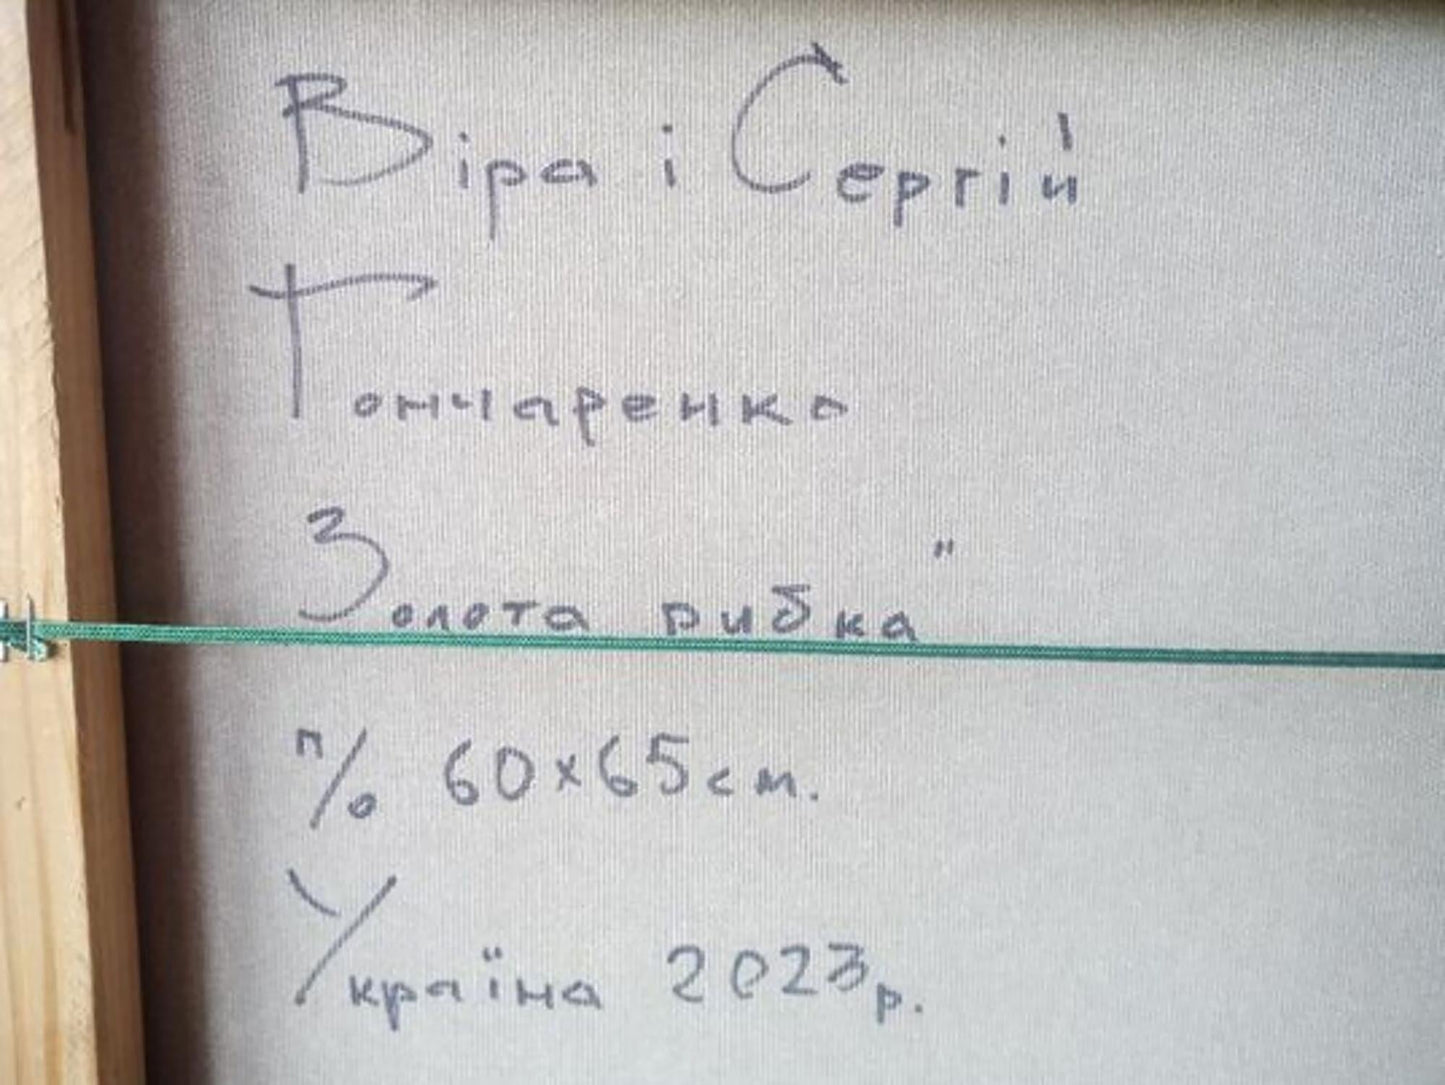 Віра і Сергій
Гончаренко
Золота рибка"
п/о 60х65см.
Україна 2023р.